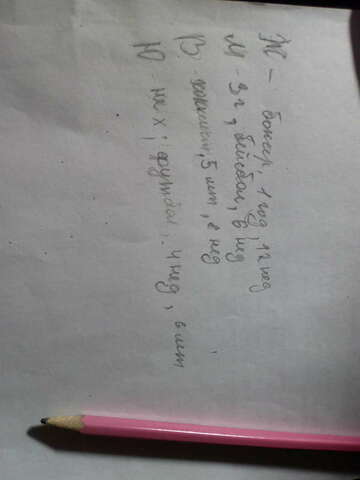 Ж - бокс, 1 год, 12 нед
М - 3 г, бейсбол, 6 нед
В - хоккеист, 5 лет, 8 нед
Ю - не х; футбол, 4 нед, 6 лет